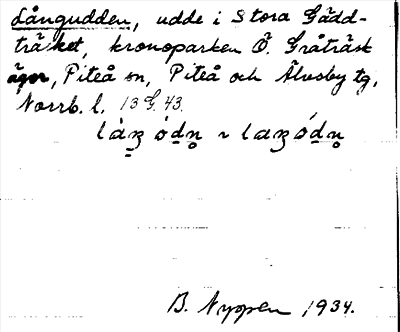 Långudden, udde i Stora Gädd-
träsket, kronoparken Ö. Gråträsk
äger, Piteå sn, Piteå och Älvsby tg,
Norrb. l. 13 G. 43.
B. Nyppen 1934.